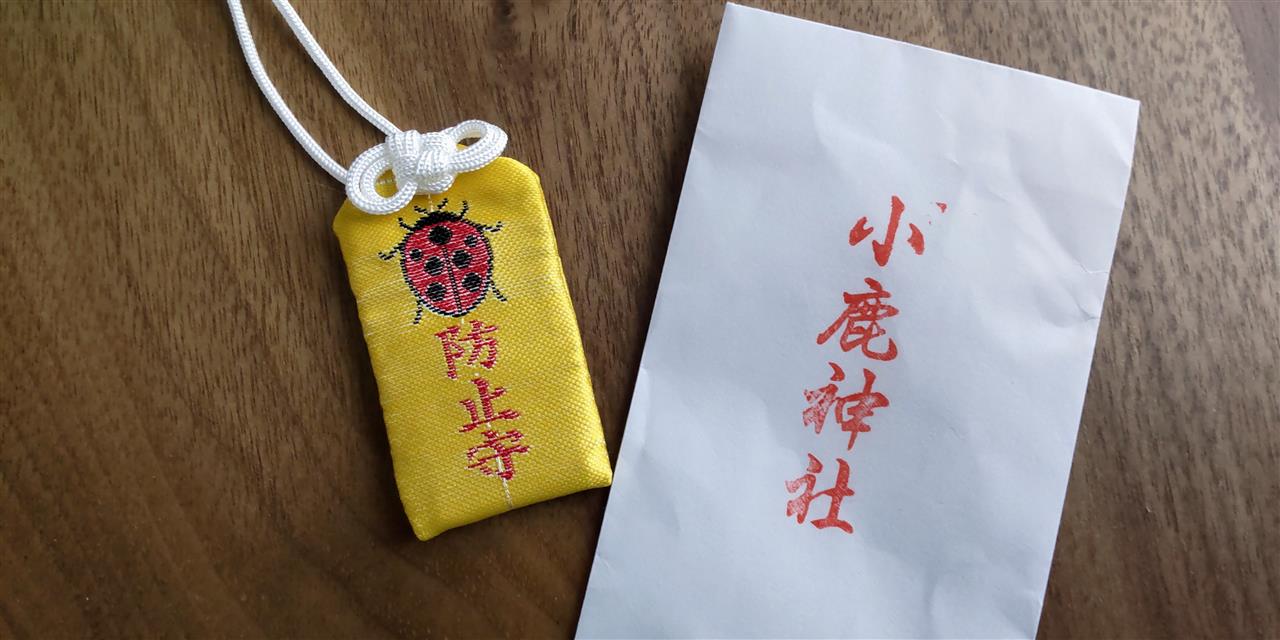 防止守
小鹿神社